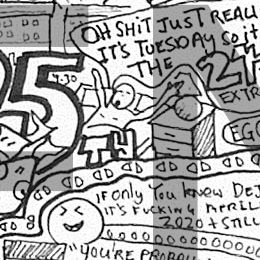 OH SHiT JUST REALI
IT'S TUESDAY So it
THE 21
25
TH
EXTR
EGO
iF only You knew DEJ
iT'S FUCKING APRIL
2020 + STILL
"YOU'RE PROBABL